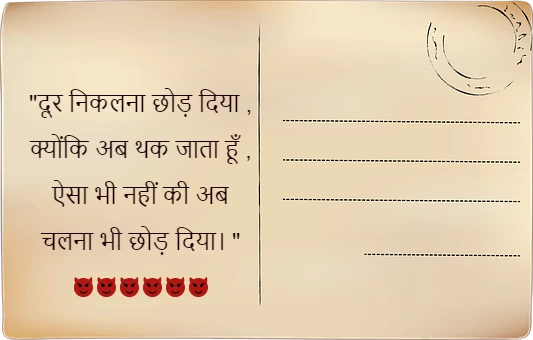 "दूर निकलना छोड़ दिया ,
क्योंकि अब थक जाता हूँ ,
ऐसा भी नहीं की अब
चलना भी छोड़ दिया। "
😈😈😈😈😈😈